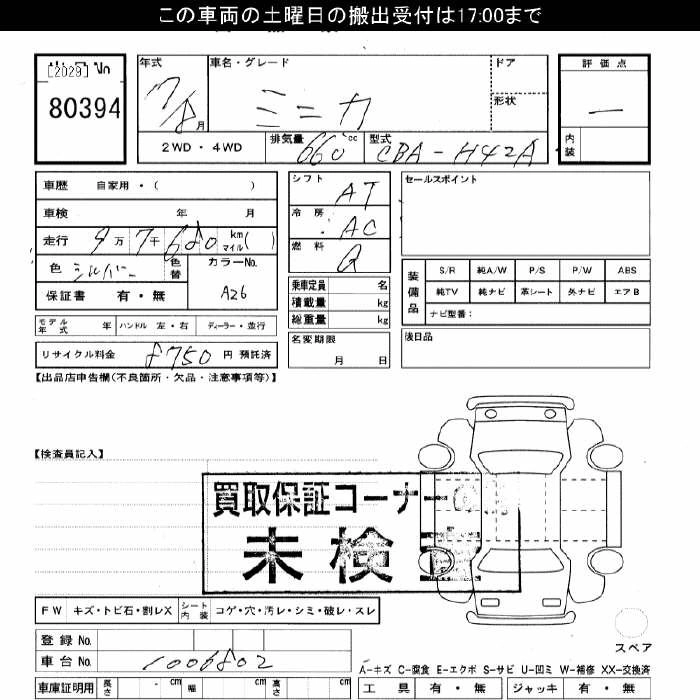 この車両の土曜日の搬出受付は17:00まで
[2029] No
80394
年式
7/8月
車名・グレード
ミニカ
ドア
形状
評価点
―
内装
2WD・4WD
排気量 660 cc
型式 CBA-H42A
車歴 自家用・( )
車検 年 月
走行 9万7千680 km マイル( )
色 シルバー 色替
カラーNo. A26
保証書 有・無
モデル年式 年 ハンドル 左・右 ディーラー・並行
リサイクル料金 8750 円 預託済
シフト AT
冷房 AC
燃料 G
乗車定員 名
積載量 kg
総重量 kg
名変期限
月 日
セールスポイント
装備品
S/R 純A/W P/S P/W ABS
純TV 純ナビ 革シート 外ナビ エアB
ナビ型番:
後日品
【出品店申告欄(不良箇所・欠品・注意事項等)】
【検査員記入】
買取保証コーナー
未検
FW キズ・トビ石・割レX シート内装 コゲ・穴・汚レ・シミ・破レ・スレ
登録No.
車台No. 1006802
車庫証明用 長さ cm 幅 cm 高さ cm
スペア
A-キズ C-腐食 E-エクボ S-サビ U-凹ミ W-補修 XX-交換済
工具 有・無 ジャッキ 有・無